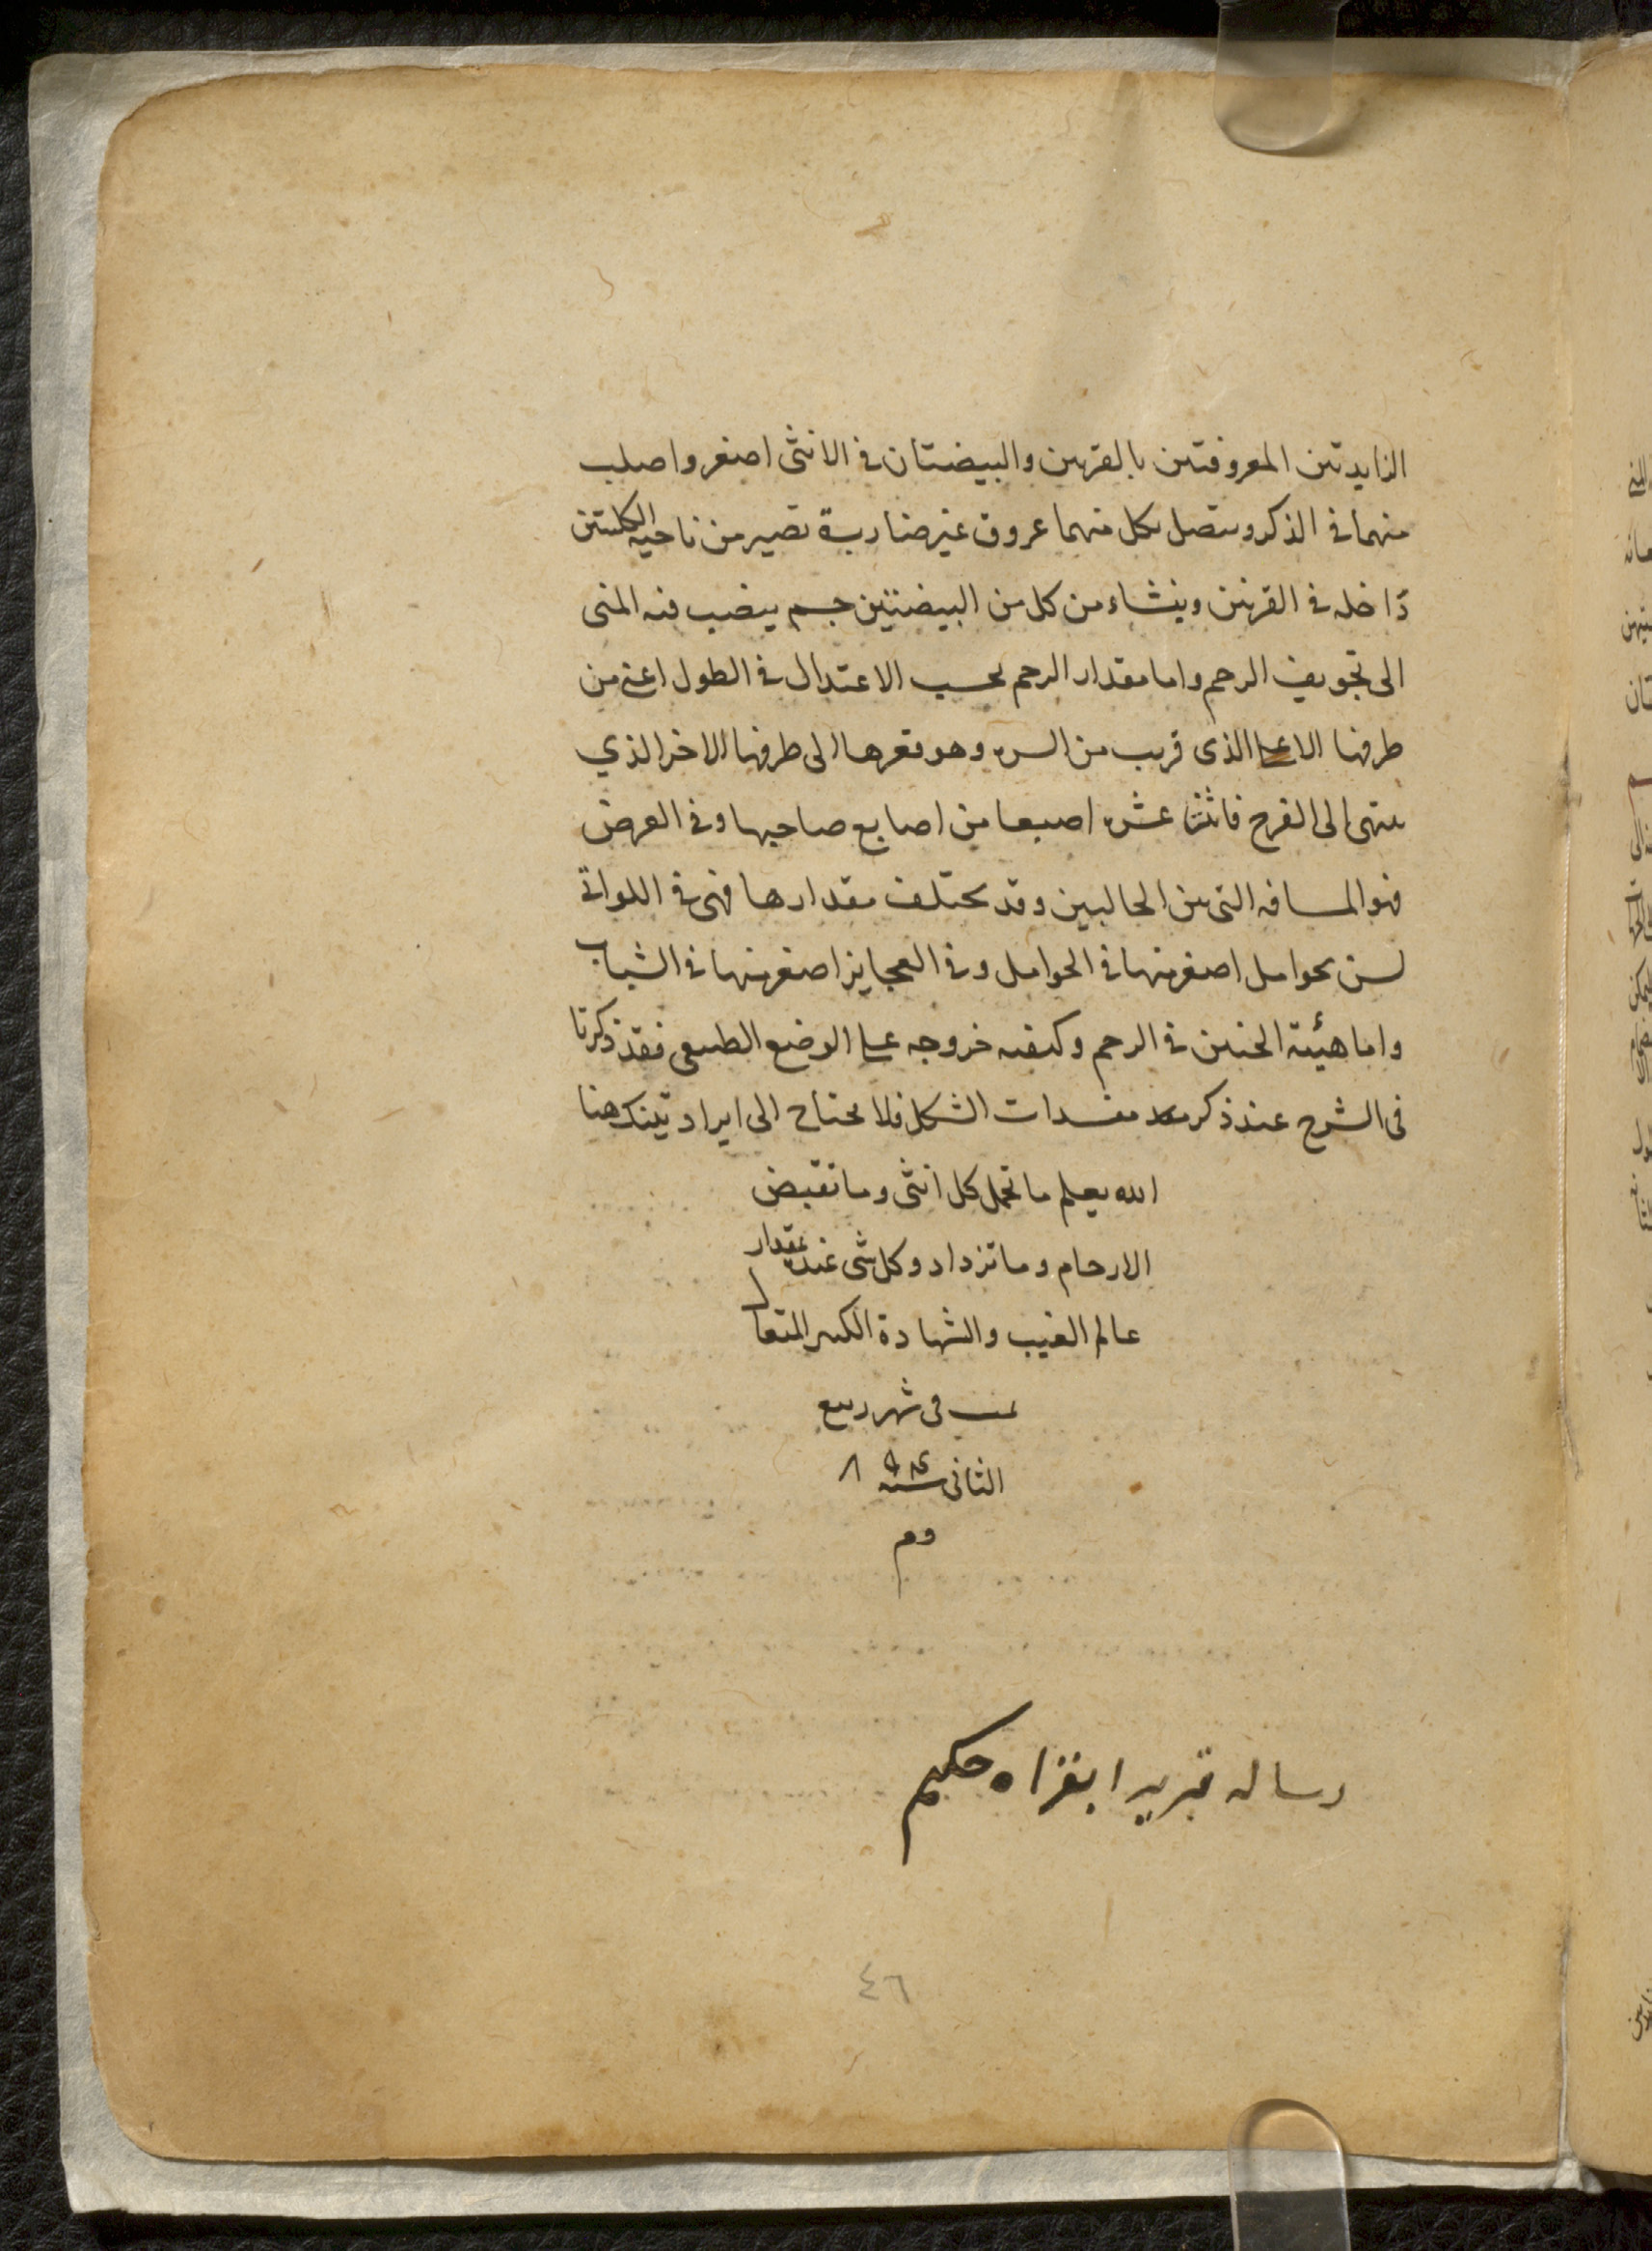 الزايدتين المعروفتين بالقرنين والبيضتان فى الانثى اصغر واصلب
منهما فى الذكر ويتصل بكل منهما عروق غير ضاربة تصير من ناحيه الكليتين
داخله فى القرنين وينشاء من كل من البيضتين جسم ينصب فيه المنى
الى تجويف الرحم واما مقدار الرحم بحسب الاعتدال فى الطول اعنى من
طرفها الاعلى الذى قريب من السره وهو قعرها الى طرفها الاخر الذي
ينتهى الى الفرج فاثنتا عشره اصبعا من اصابع صاحبها وفى العرض
فهو المسافه التى بين الحالبين وقد يختلف مقدارها فهى فى اللواتى
لسن بحوامل اصغر منها فى الحوامل وفى العجايز اصغر منها فى الشباب
واما هيئة الجنين فى الرحم وكيفيه خروجه على الوضع الطبيعى فقد ذكرنا
فى الشرح عند ذكر مفسدات الشكل فلا يحتاج الى ايراد تينك هنا
الله يعلم ما تحمل كل انثى وما تغيض
الارحام وما تزداد وكل شى عنده بمقدار
عالم الغيب والشهادة الكبير المتعال
تمت فى شهر ربيع
الثانى سنه
م م
رساله تبريد ابقراه حكيم
٤٦